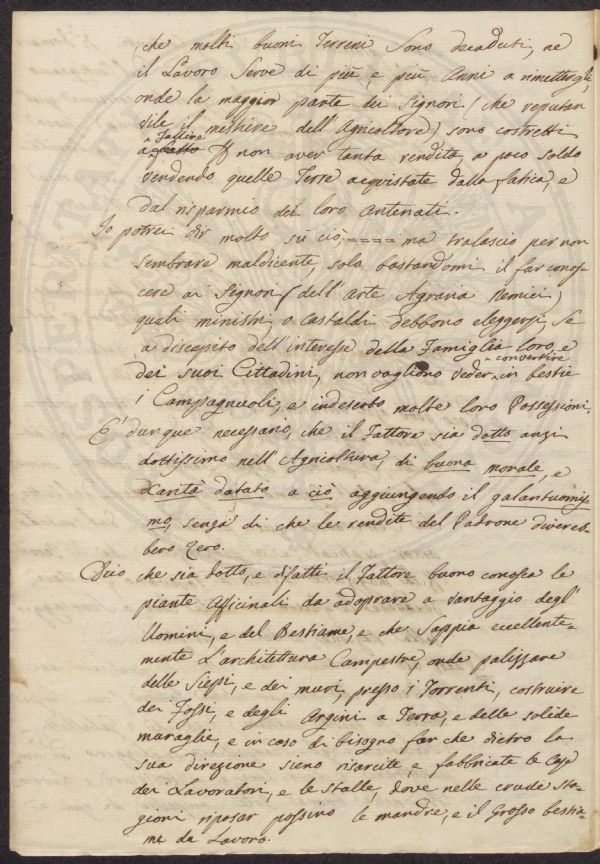 che molti buoni Terreni sono decaduti, ne
il Lavoro serve di più, e più Anni a rimettergli,
onde la maggior parte dei Signori (che reputan
vile il mestiere dell'Agricoltore) sono costretti
a Fallire
non aver tanta rendita, a poco soldo
vendendo quelle Terre acquistate dalla fatica, e
dal risparmio dei loro Antenati.
Io potrei dir molto sù ciò ---- ma tralascio per non
sembrare maldicente, solo bastandomi il far conos-
cere ai Signori (dell'Arte Agraria Nemici)
quali ministri, o Castaldi debbono eleggersi, se
a discapito dell'interesse della Famiglia loro, e
dei suoi Cittadini, non vogliono veder convertire in bestie
i Campagnuoli, e in deserto molte loro Possessioni.
E' dunque necessario, che il Fattore sia dotto anzi
dottissimo nell'Agricoltura, di buona morale, e
Carità dotato a ciò aggiungendo il galantuomis-
mo, senza di che le rendite del Padrone divereb-
bero Zero.
Dico che sia dotto, e difatti il Fattore buono conosca le
piante Officinali da adoprare a vantaggio degl'
Uomini, e del Bestiame, e che sappia eccellente-
mente L'architettura Campestre, onde palizzare
delle Siepi, e dei muri, presso i Torrenti, costruire
dei Fossi, e degli Argini a Terra, e delle solide
muraglie, e in caso di bisogno far che dietro la
sua direzione sieno risarcite, e fabbricate le Case
dei Lavoratori, e le stalle, dove nelle crude sta-
gioni riposar possino le mandre, e il Grosso bestia-
me da Lavoro.